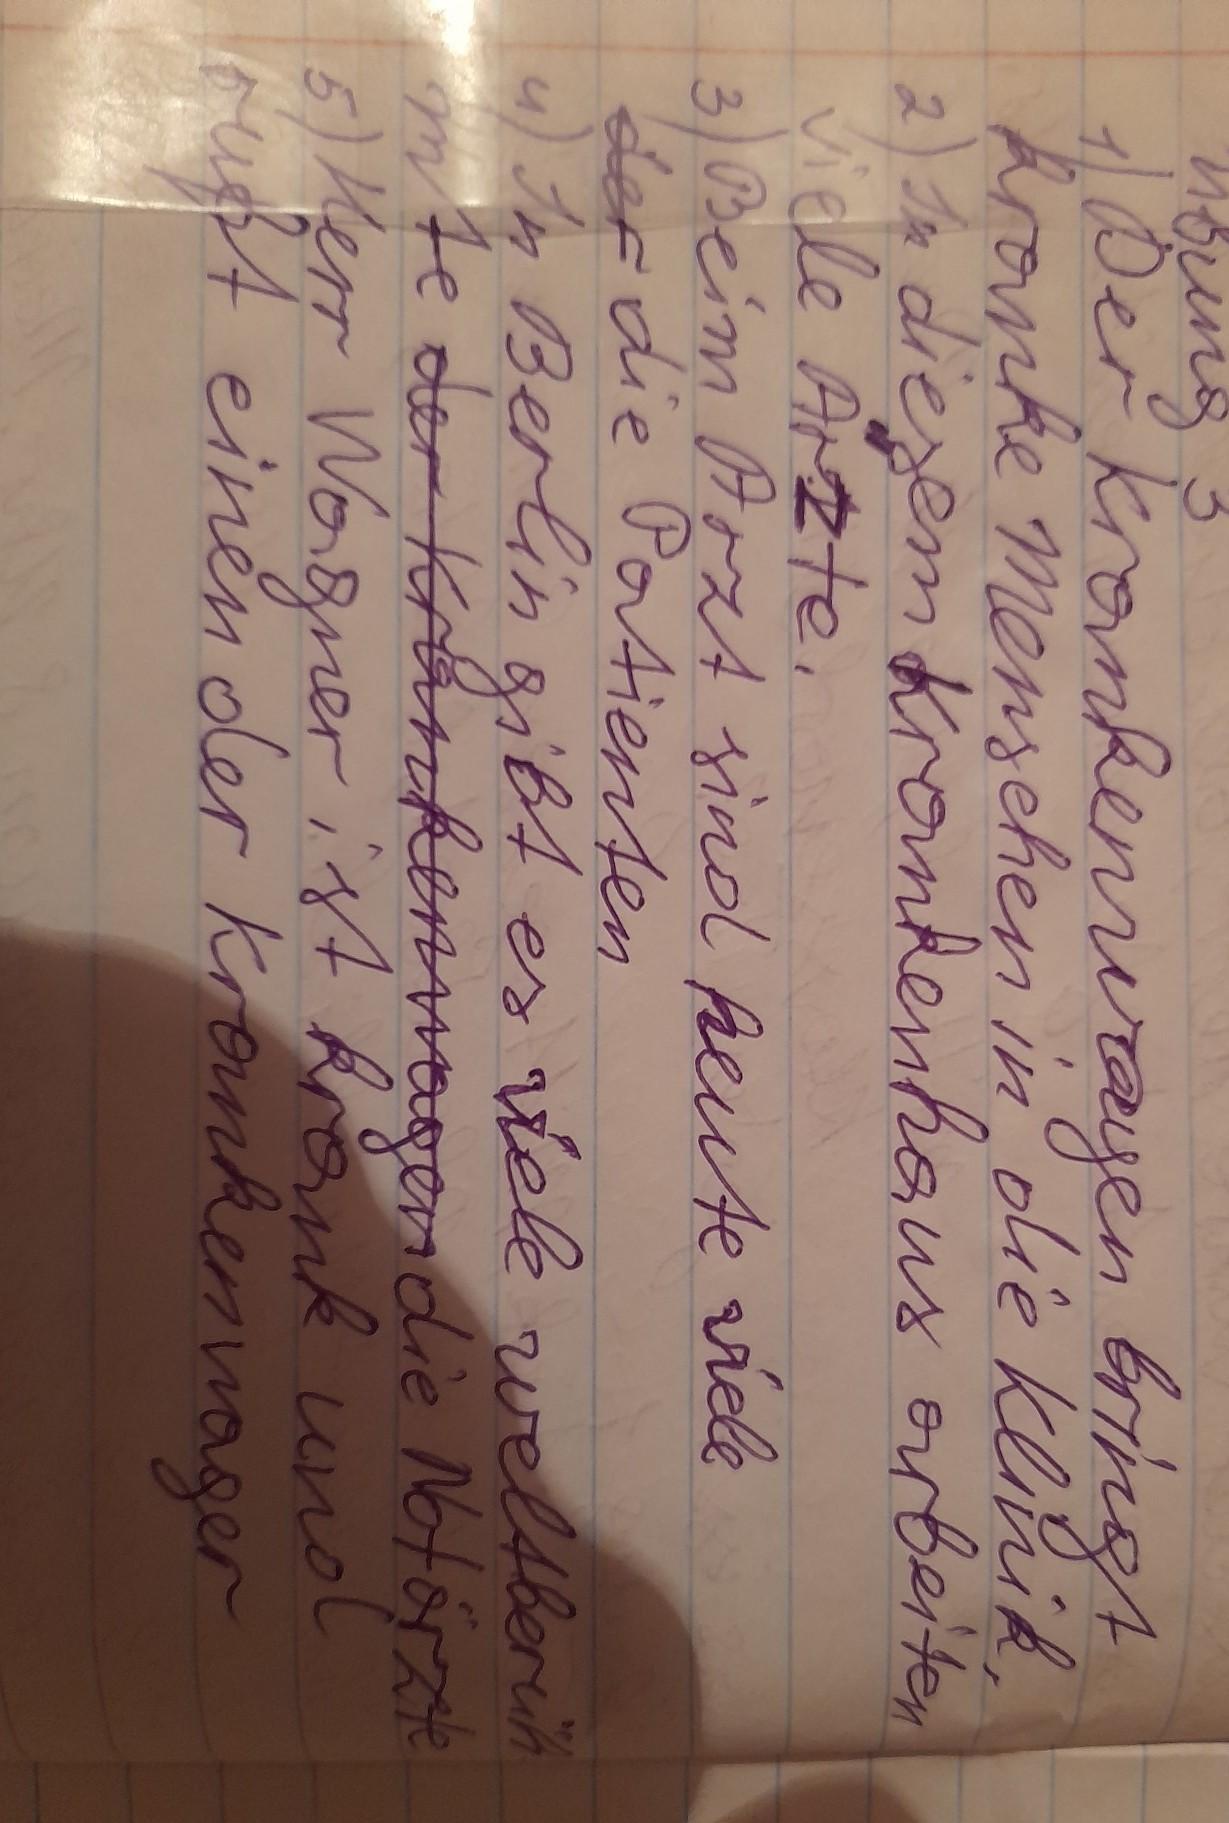 Übung 3
1) Der Krankenwagen bringt
kranke Menschen in die Klinik,
2) In diesem Krankenhaus arbeiten
viele Arzte.
3) Beim Arzt sind heute viele
der die Patienten
4) In Berlin gibt es viele weltberüh
mte der Krankenwagen die Notärzte
5) Herr Wagner ist krank und
ruft einen der Krankenwager